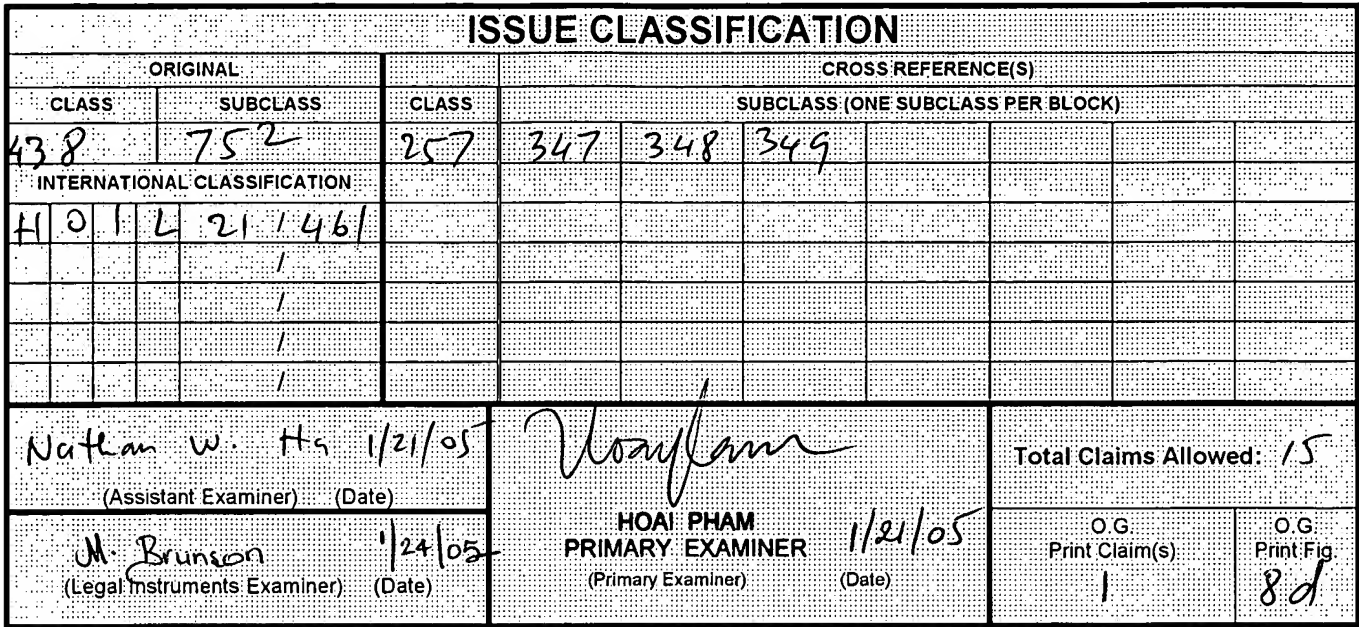 ISSUE CLASSIFICATION
ORIGINAL CROSS REFERENCE(S)
CLASS SUBCLASS CLASS SUBCLASS (ONE SUBCLASS PER BLOCK)
438 752 257 347 348 349
INTERNATIONAL CLASSIFICATION
H 0 1 L 21 / 461
/
/
/
/
Nathan W. Ha 1/21/05
(Assistant Examiner) (Date)
M. Brunson 1/24/05
(Legal Instruments Examiner) (Date)
HOAI PHAM
PRIMARY EXAMINER 1/21/05
(Primary Examiner) (Date)
Total Claims Allowed: 15
O.G.
Print Claim(s)
1
O.G.
Print Fig.
8d